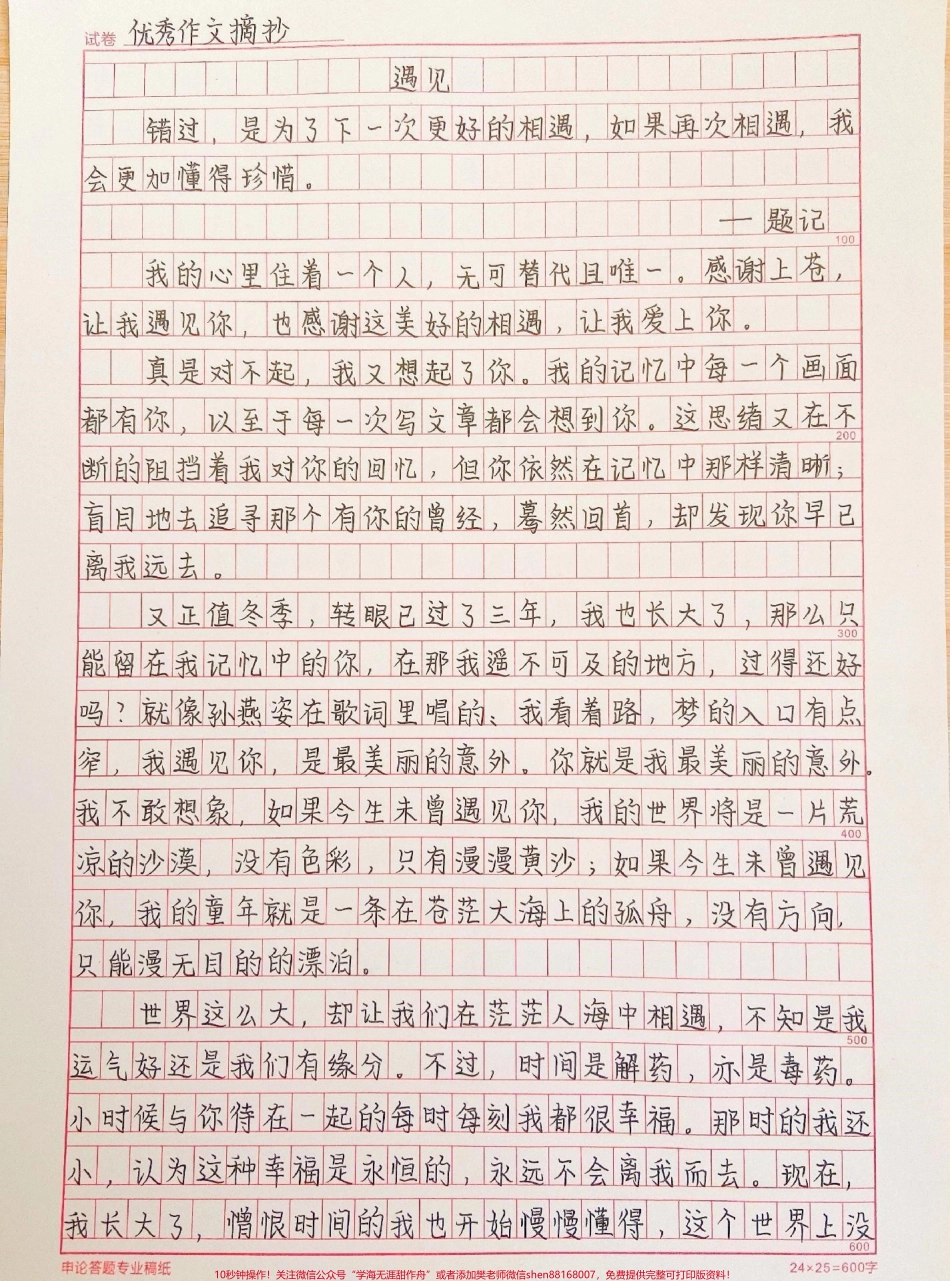 试卷 优秀作文摘抄
遇见
错过，是为了下一次更好的相遇，如果再次相遇，我
会更加懂得珍惜。
——题记
100
我的心里住着一个人，无可替代且唯一。感谢上苍，
让我遇见你，也感谢这美好的相遇，让我爱上你。
真是对不起，我又想起了你。我的记忆中每一个画面
都有你，以至于每一次写文章都会想到你。这思绪又在不
200
断的阻挡着我对你的回忆，但你依然在记忆中那样清晰；
盲目地去追寻那个有你的曾经，蓦然回首，却发现你早已
离我远去。
又正值冬季，转眼已过了三年，我也长大了，那么只
300
能留在我记忆中的你，在那我遥不可及的地方，过得还好
吗？就像孙燕姿在歌词里唱的：我看着路，梦的入口有点
窄，我遇见你，是最美丽的意外。你就是我最美丽的意外。
我不敢想象，如果今生未曾遇见你，我的世界将是一片荒
400
凉的沙漠，没有色彩，只有漫漫黄沙；如果今生未曾遇见
你，我的童年就是一条在苍茫大海上的孤舟，没有方向，
只能漫无目的的漂泊。
世界这么大，却让我们在茫茫人海中相遇，不知是我
500
运气好还是我们有缘分。不过，时间是解药，亦是毒药。
小时候与你待在一起的每时每刻我都很幸福。那时的我还
小，认为这种幸福是永恒的，永远不会离我而去。现在，
我长大了，憎恨时间的我也开始慢慢懂得，这个世界上没
600
申论答题专业稿纸 24×25=600字
10秒钟操作！关注微信公众号“学海无涯甜作舟”或者添加樊老师微信shen88168007，免费提供完整可打印版资料！